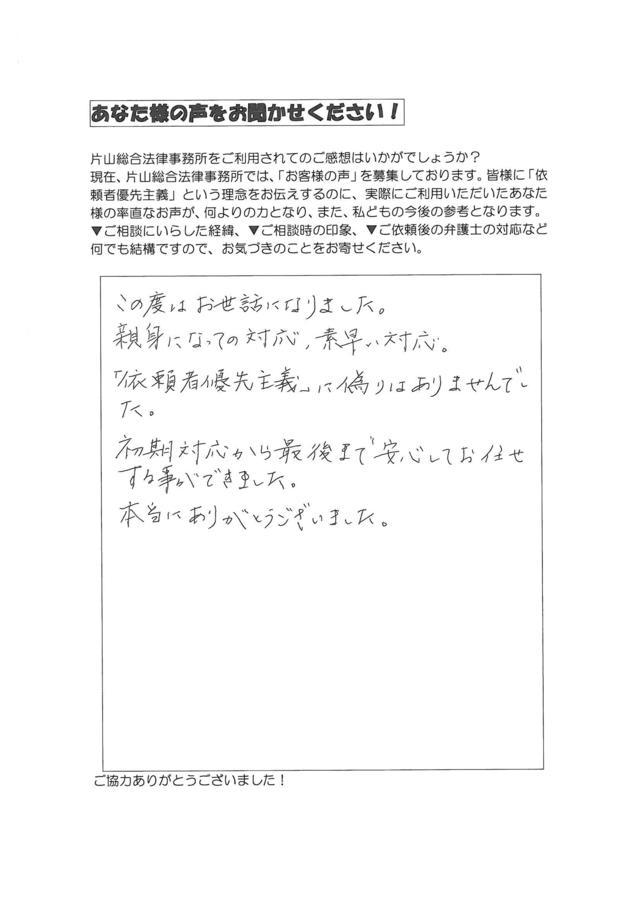 あなた様の声をお聞かせください！
片山総合法律事務所をご利用されてのご感想はいかがでしょうか？
現在、片山総合法律事務所では、「お客様の声」を募集しております。皆様に「依
頼者優先主義」という理念をお伝えするのに、実際にご利用いただいたあなた
様の率直なお声が、何よりの力となり、また、私どもの今後の参考となります。
▼ご相談にいらした経緯、▼ご相談時の印象、▼ご依頼後の弁護士の対応など
何でも結構ですので、お気づきのことをお寄せください。
この度はお世話になりました。
親身になっての対応，素早い対応。
「依頼者優先主義」に偽りはありませんでし
た。
初期対応から最後まで安心してお任せ
する事ができました。
本当にありがとうございました。
ご協力ありがとうございました！